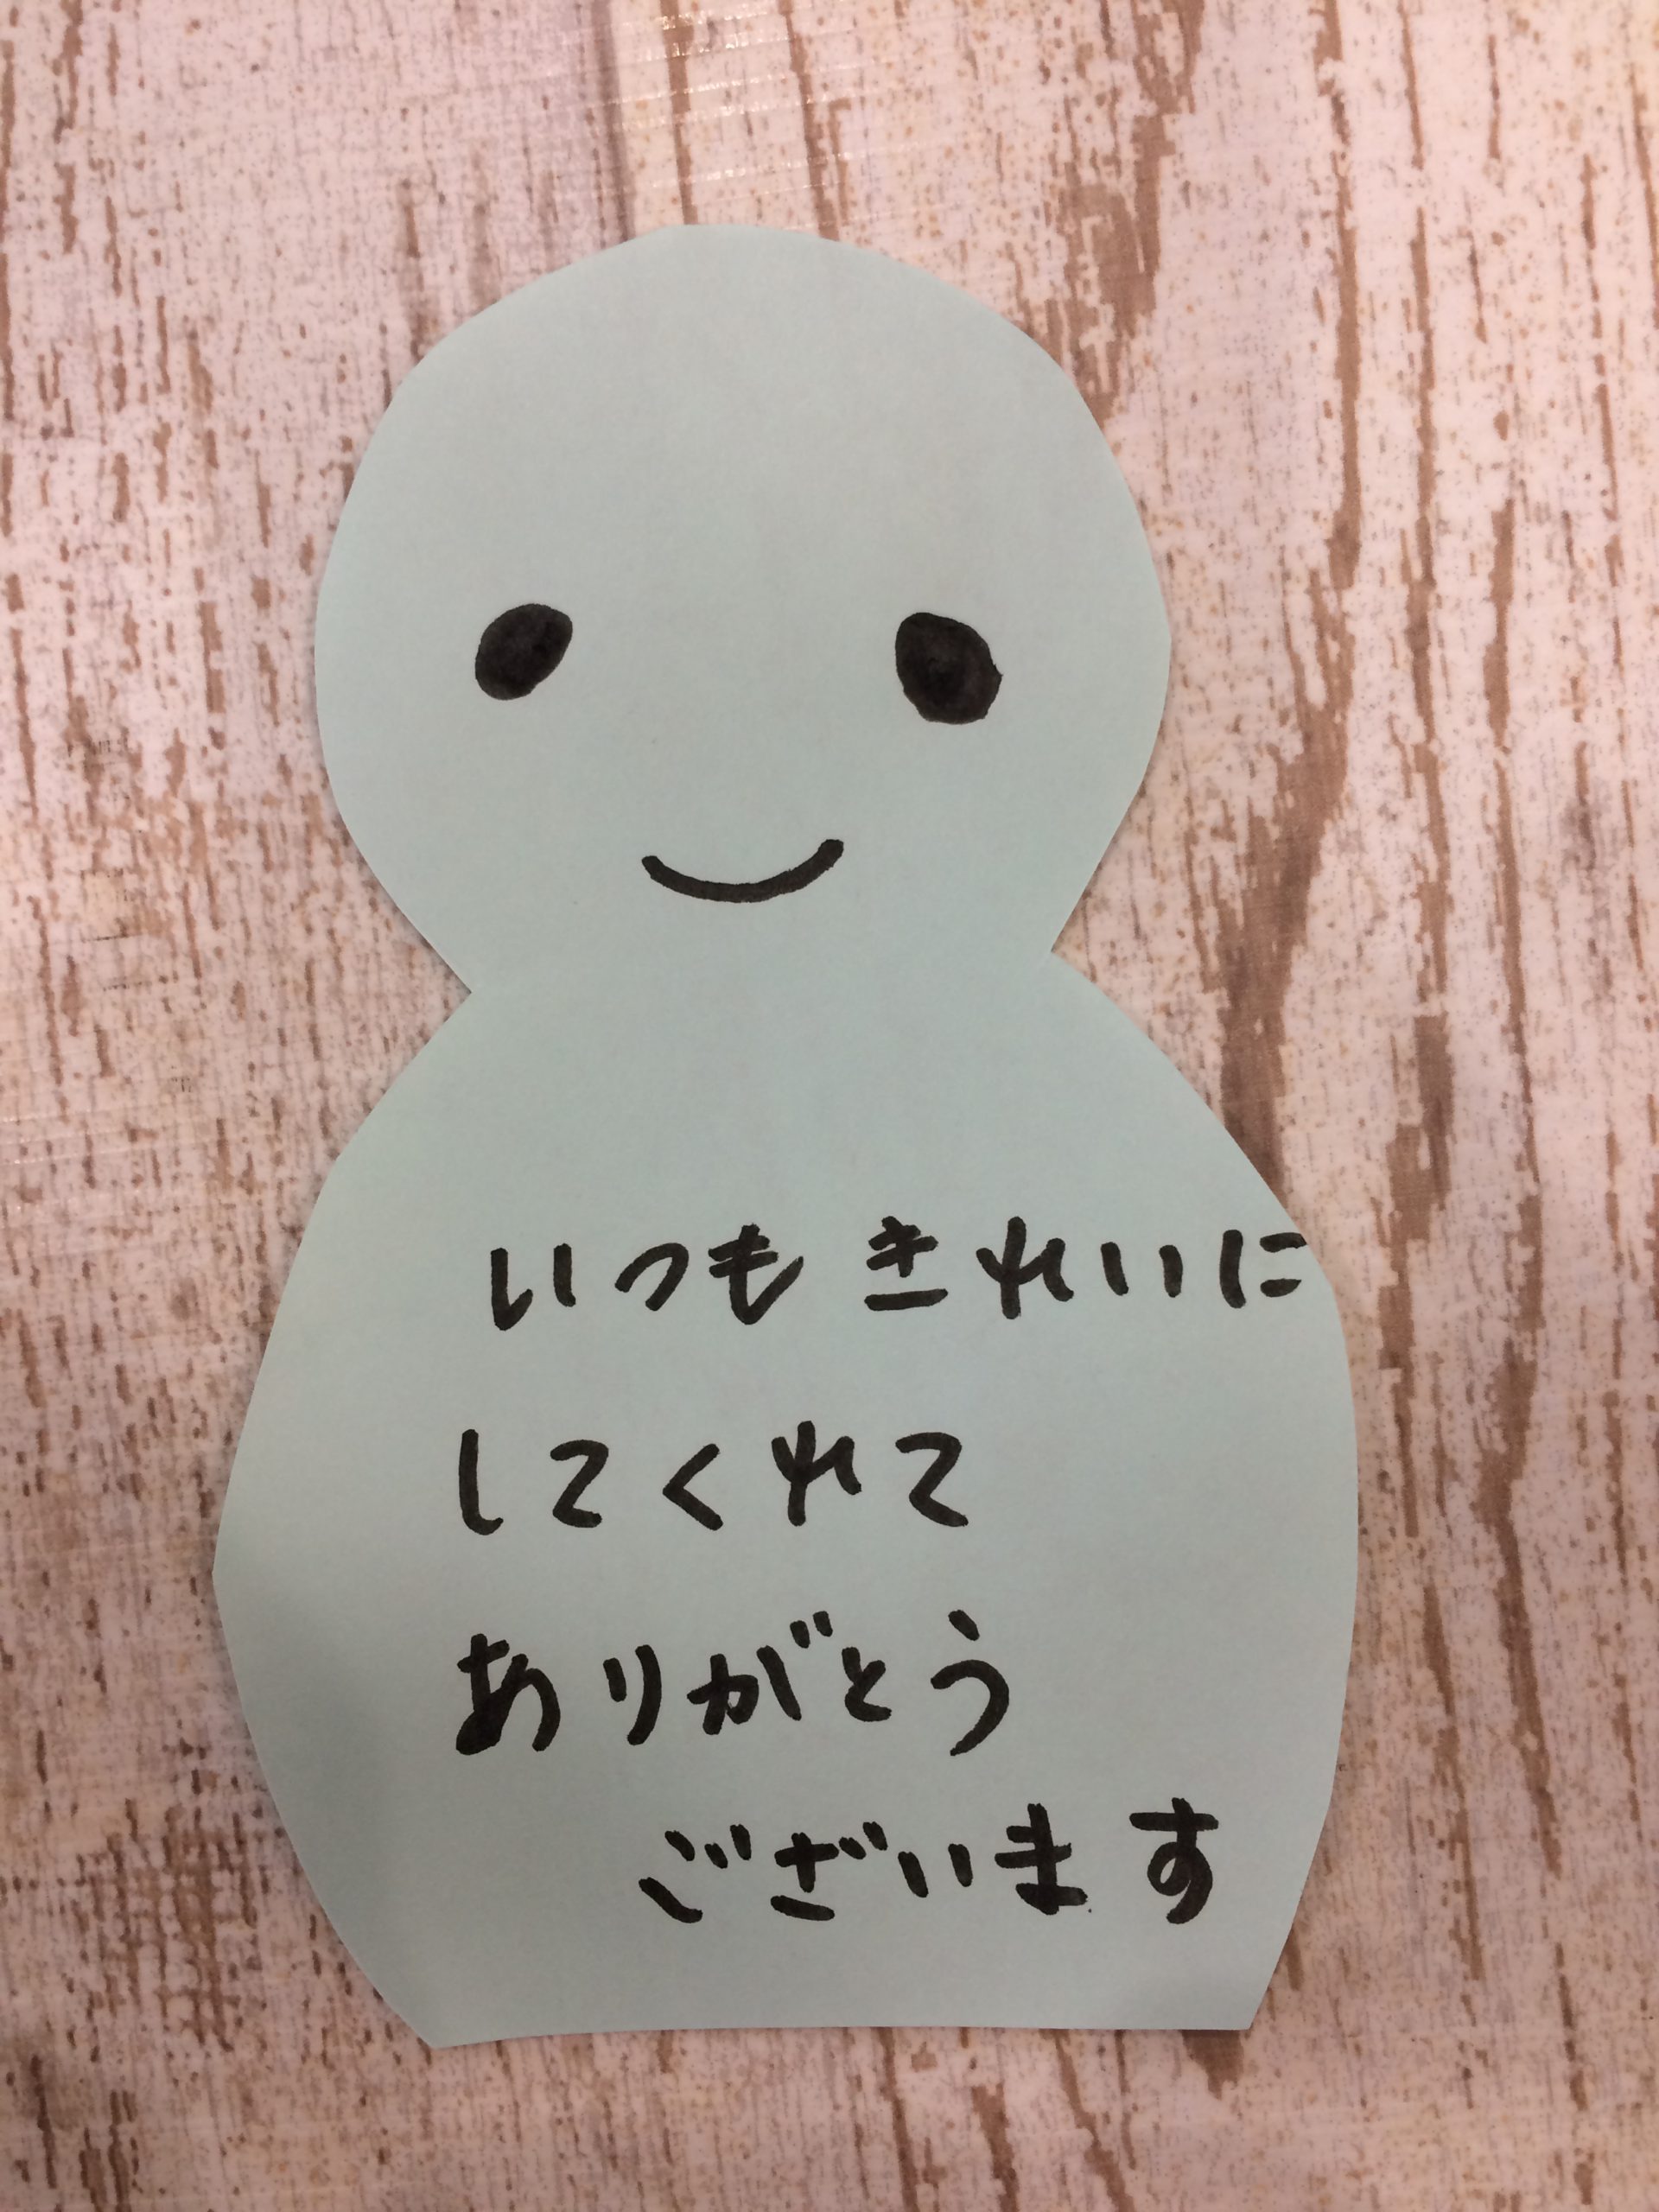 いつもきれいに
してくれて
ありがとう
ございます